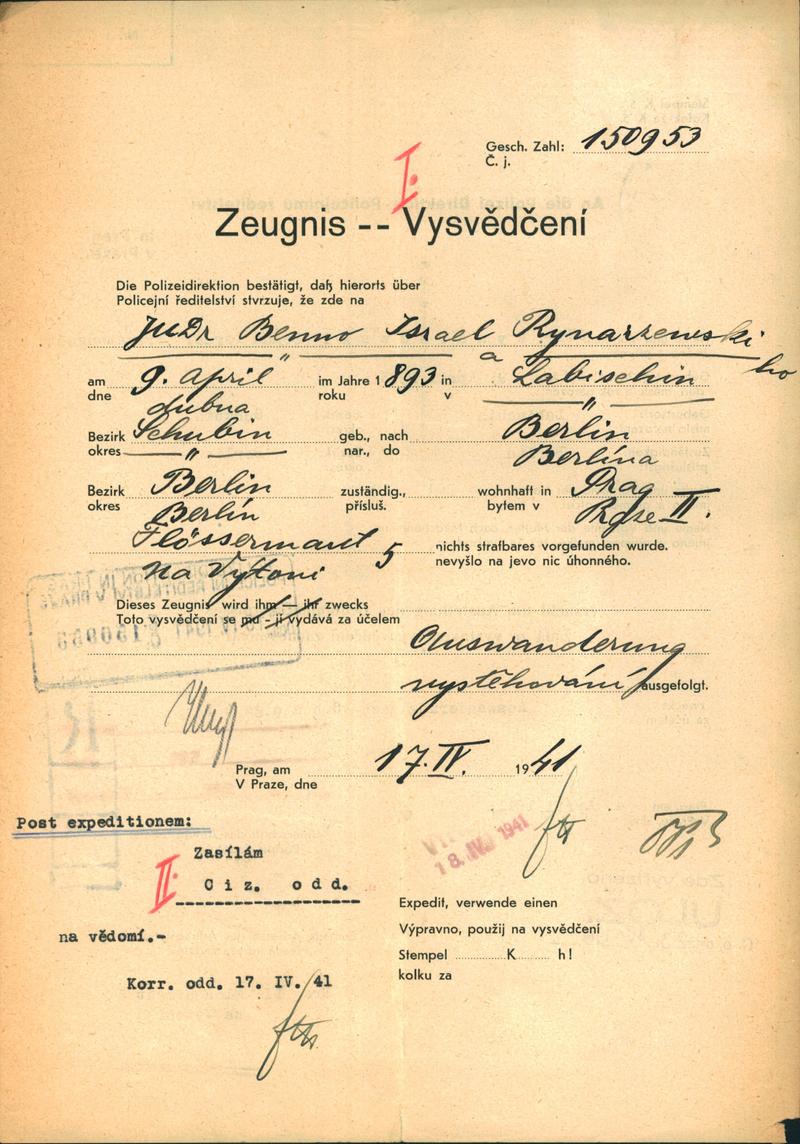 Gesch. Zahl: 150953
Č. j.
I.
Zeugnis -- Vysvědčení
Die Polizeidirektion bestätigt, daß hierorts über
Policejní ředitelství stvrzuje, že zde na
JUDr Benno Israel Rynarzewski
a ho
am 9. April im Jahre 1893 in Labischin
dne dubna roku v "
Bezirk Schubin geb., nach Berlin
okres " nar., do Berlína
Bezirk Berlin zuständig., wohnhaft in Prag
okres Berlín přísluš. bytem v Praze II.
Flössermaut 5 nichts strafbares vorgefunden wurde.
Na Výtoni nevyšlo na jevo nic úhonného.
Dieses Zeugnis wird ihm — ihr zwecks
Toto vysvědčení se mu - jí vydává za účelem
Auswanderung
vystěhování ausgefolgt.
Prag, am 17. IV. 1941
V Praze, dne
Post expeditionem:
18. IV. 1941
Zasílám
II. Ciz. odd.
na vědomí.-
Expedit, verwende einen
Výpravno, použij na vysvědčení
Stempel K h!
kolku za
Korr. odd. 17. IV. 41